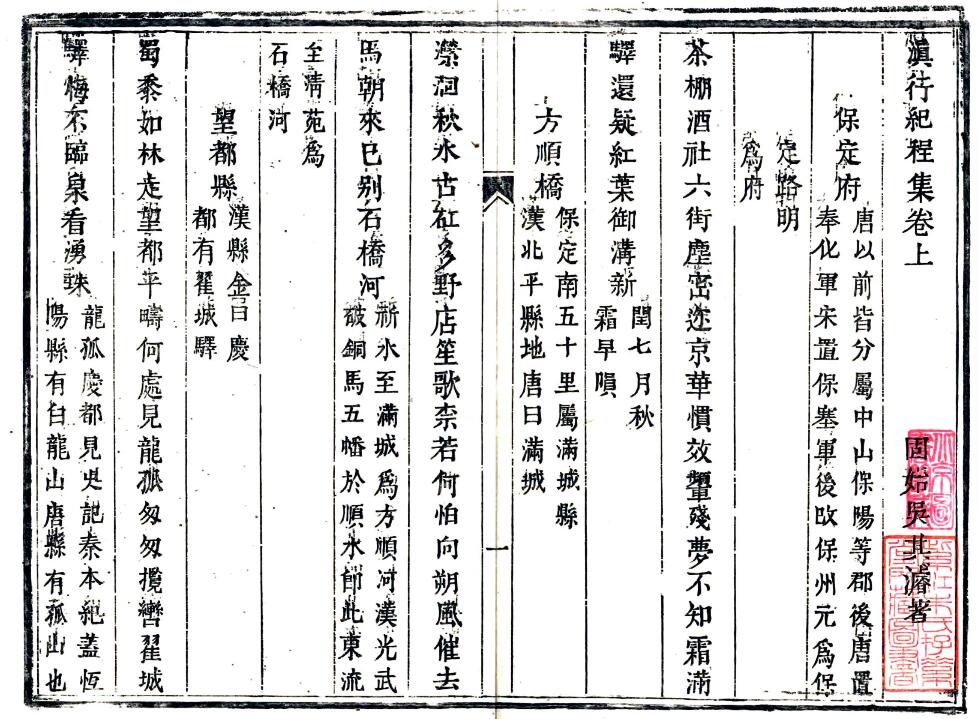 滇行紀程集卷上
固始吳其濬著
保定府
唐以前皆分屬中山保陽等郡後唐置
奉化軍宋置保塞軍後改保州元為保
定路明
為府
茶棚酒社六街塵密迩京華慣效顰殘夢不知霜滿
驛還疑紅葉御溝新
閏七月秋
霜早隕
方順橋
保定南五十里屬滿城縣
漢北平縣地唐曰滿城
瀠洄秋水古祉多野店笙歌柰若何怕向朔風催去
馬朝來已别石橋河
祈水至滿城為方順河漢光武
破銅馬五幡於順水卽此東流
至淸苑為
石橋河
望都縣
漢縣金曰慶
都有翟城驛
蜀黍如林走望都平疇何處見龍孤匆匆攬轡翟城
驛悔不臨泉看湧珠
龍孤慶都見史記秦本紀蓋恆
陽縣有白龍山唐縣有孤山也
一